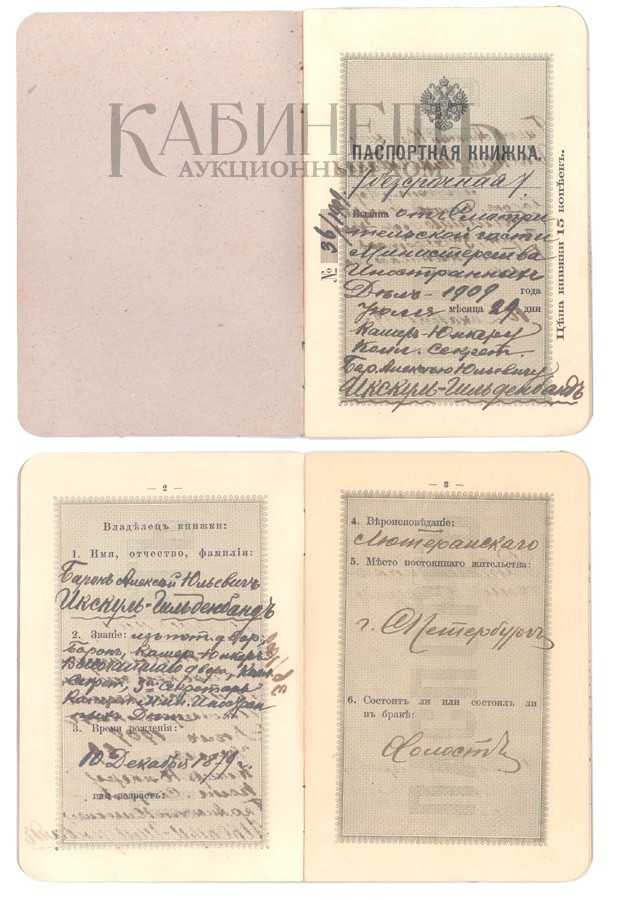 КАБИНЕТЪ
АУКЦИОННЫЙ ДОМ
ПАСПОРТНАЯ КНИЖКА.
/безсрочная/.
№ 36/
Выдана отъ Смотри
тельской части
Министерства
Иностранныхъ
Дѣлъ - 1909 года
Iюля мѣсяца 29 дня
Камеръ-Юнкеру
Колл. Секрет.
Бар. Алексѣю Юльевичу
Икскуль-Гильденбандъ
Цѣна книжки 15 копѣекъ.
— 2 —
Владѣлецъ книжки:
1. Имя, отчество, фамилія:
Баронъ Алексѣй Юльевичъ
Икскуль-Гильденбандъ
2. Званіе: изъ пот. двор.
Баронъ, Камеръ-Юнкеръ
Высочайшаго двора, Колл.
Секрет., 3й Секретарь
Канцел. Мин. Иностран
ныхъ Дѣлъ
3. Время рожденія:
10 Декабря 1879 г.
или возрастъ:
— 3 —
4. Вѣроисповѣданіе:
Лютеранскаго
5. Мѣсто постояннаго жительства:
г. С.Петербургъ
6. Состоитъ ли или состоялъ ли
въ бракѣ:
Холостъ